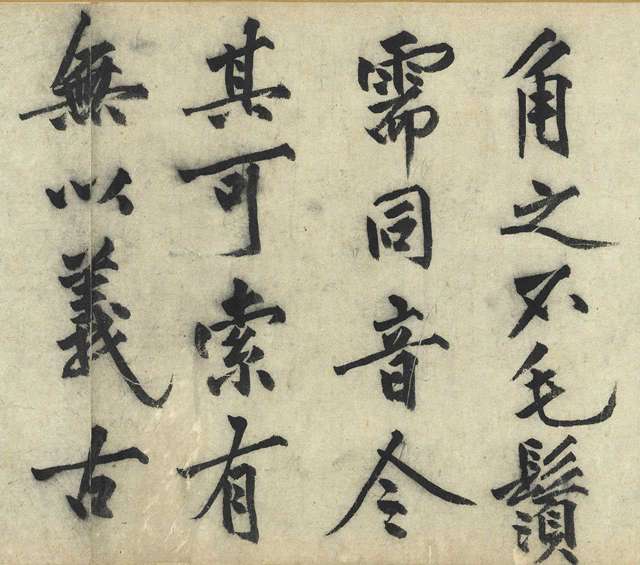 角之不毛鬚
需同音今
其可索有
無以義古